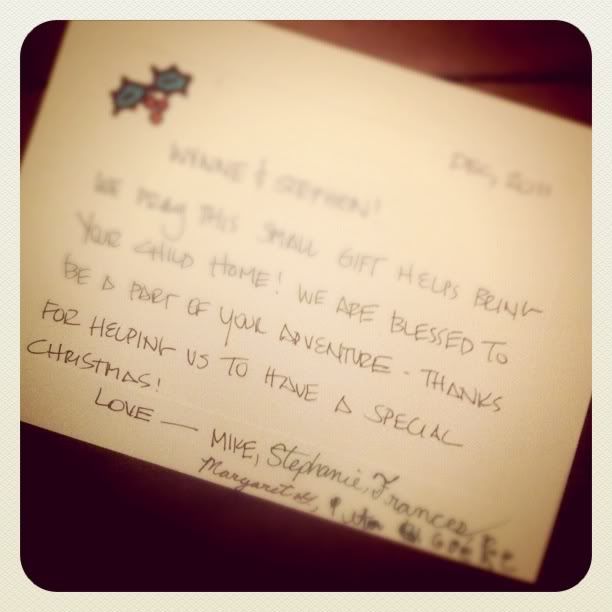 DEC, 2011
WYNNE & STEPHEN!
WE PRAY THIS SMALL GIFT HELPS BRING
YOUR CHILD HOME! WE ARE BLESSED TO
BE A PART OF YOUR ADVENTURE - THANKS
FOR HELPING US TO HAVE A SPECIAL
CHRISTMAS!
LOVE — MIKE, Stephanie, Frances,
Margaret